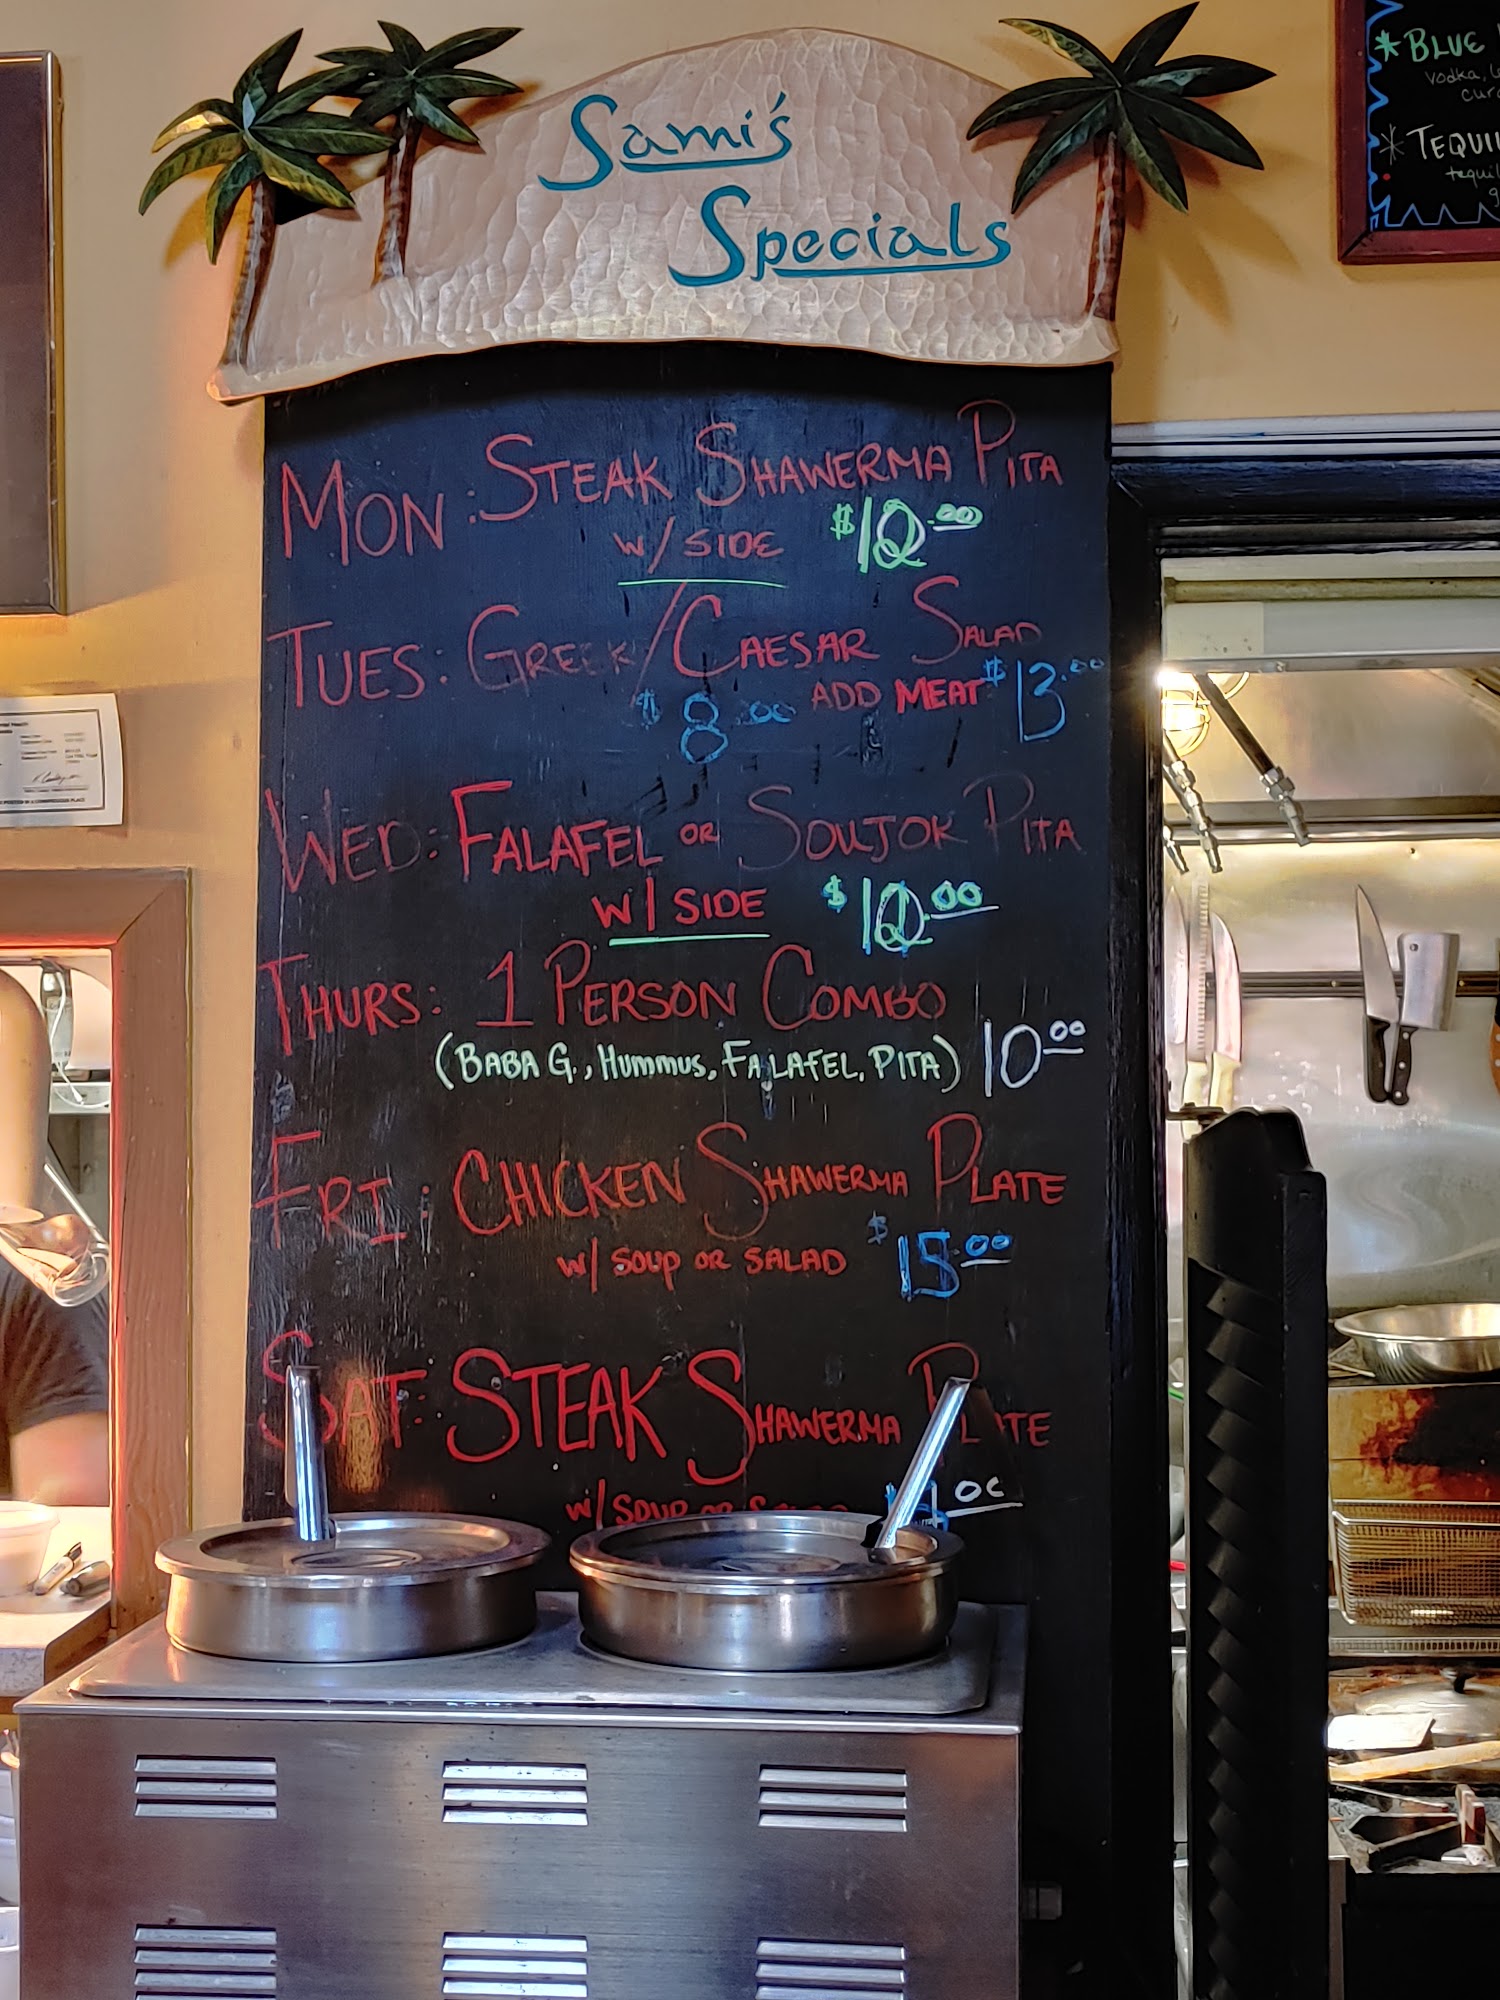 Sami's
Specials
MON: STEAK SHAWERMA PITA
W/ SIDE $12.00
TUES: GREEK/CAESAR SALAD
$8.00 ADD MEAT $13.00
WED: FALAFEL OR SOUJOK PITA
W/ SIDE $12.00
THURS: 1 PERSON COMBO
(BABA G., HUMMUS, FALAFEL, PITA) 10.00
FRI: CHICKEN SHAWERMA PLATE
W/ SOUP OR SALAD $15.00
SAT: STEAK SHAWERMA PLATE
W/ SOUP OR
* BLUE
vodka,
* TEQUI